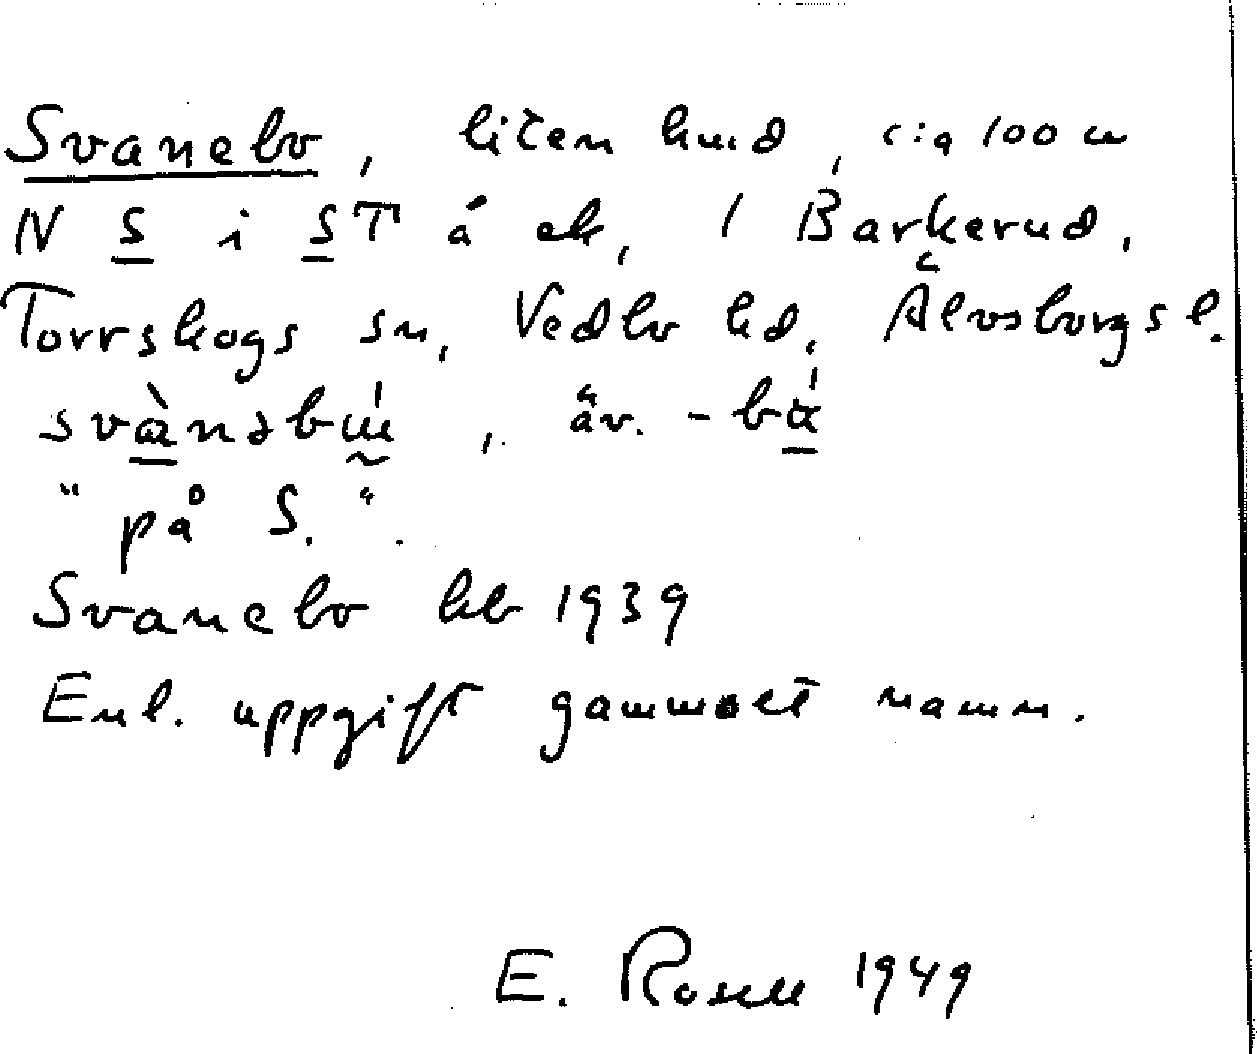 Svanebo, liten lhd, c:a 100 m
N S i ST å ek, / Barkerud,
Torrskogs sn, Vedbo hd, Älvsborgs l.
svànəbɯ́, äv. -bά
" på S. ".
Svanebo hb 1939
Enl. uppgift gammalt namn.
E. Rosell 1949